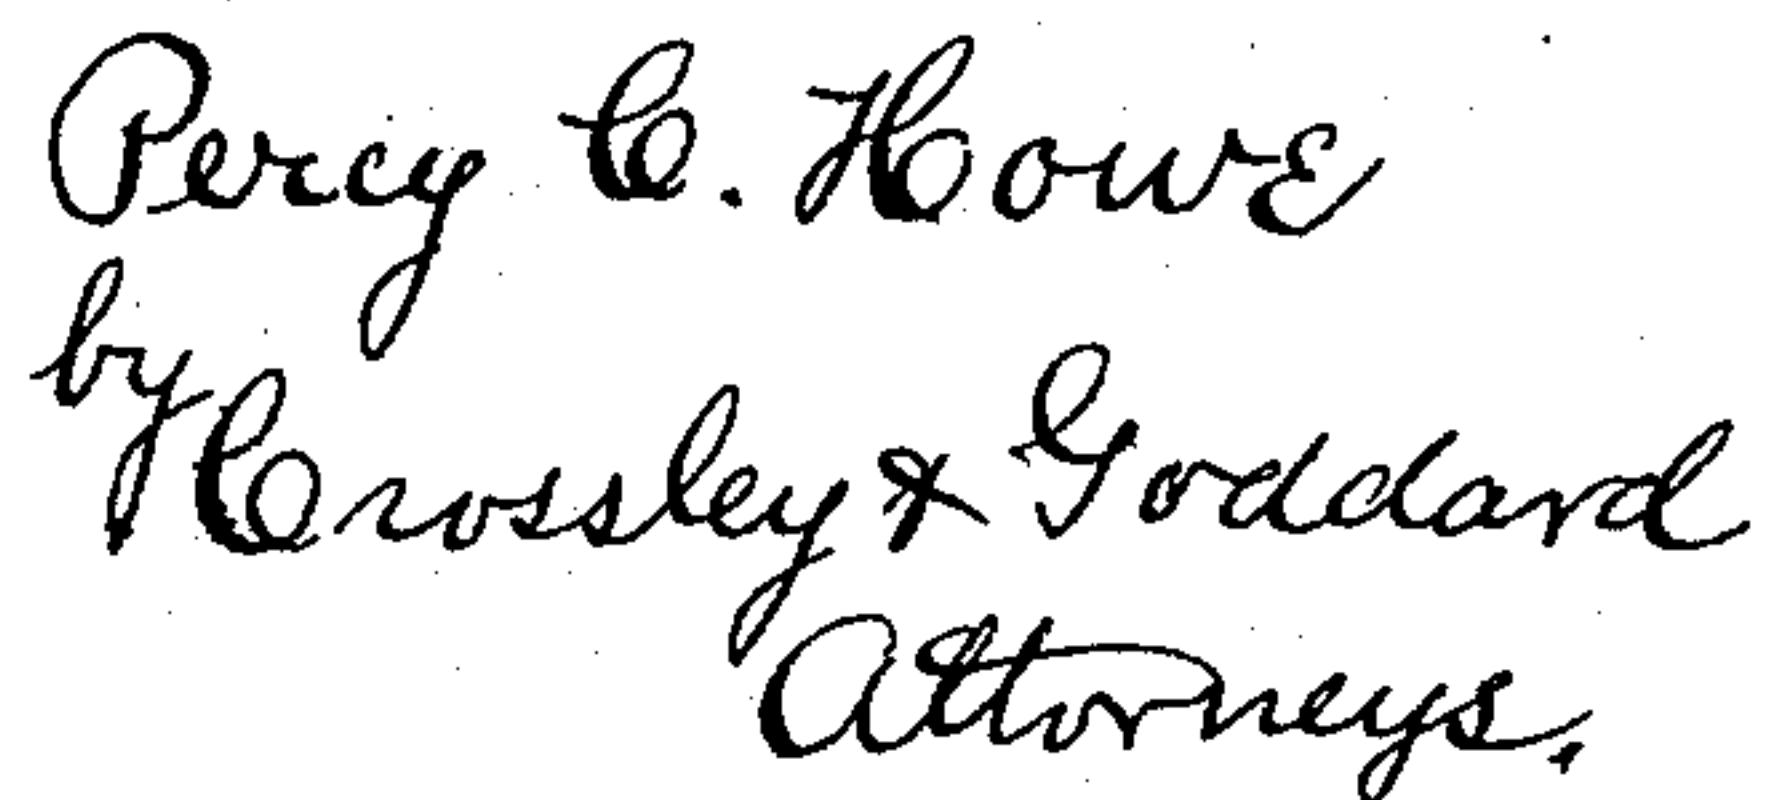 Percy C. Howe
by
Crossley & Goddard
Attorneys.